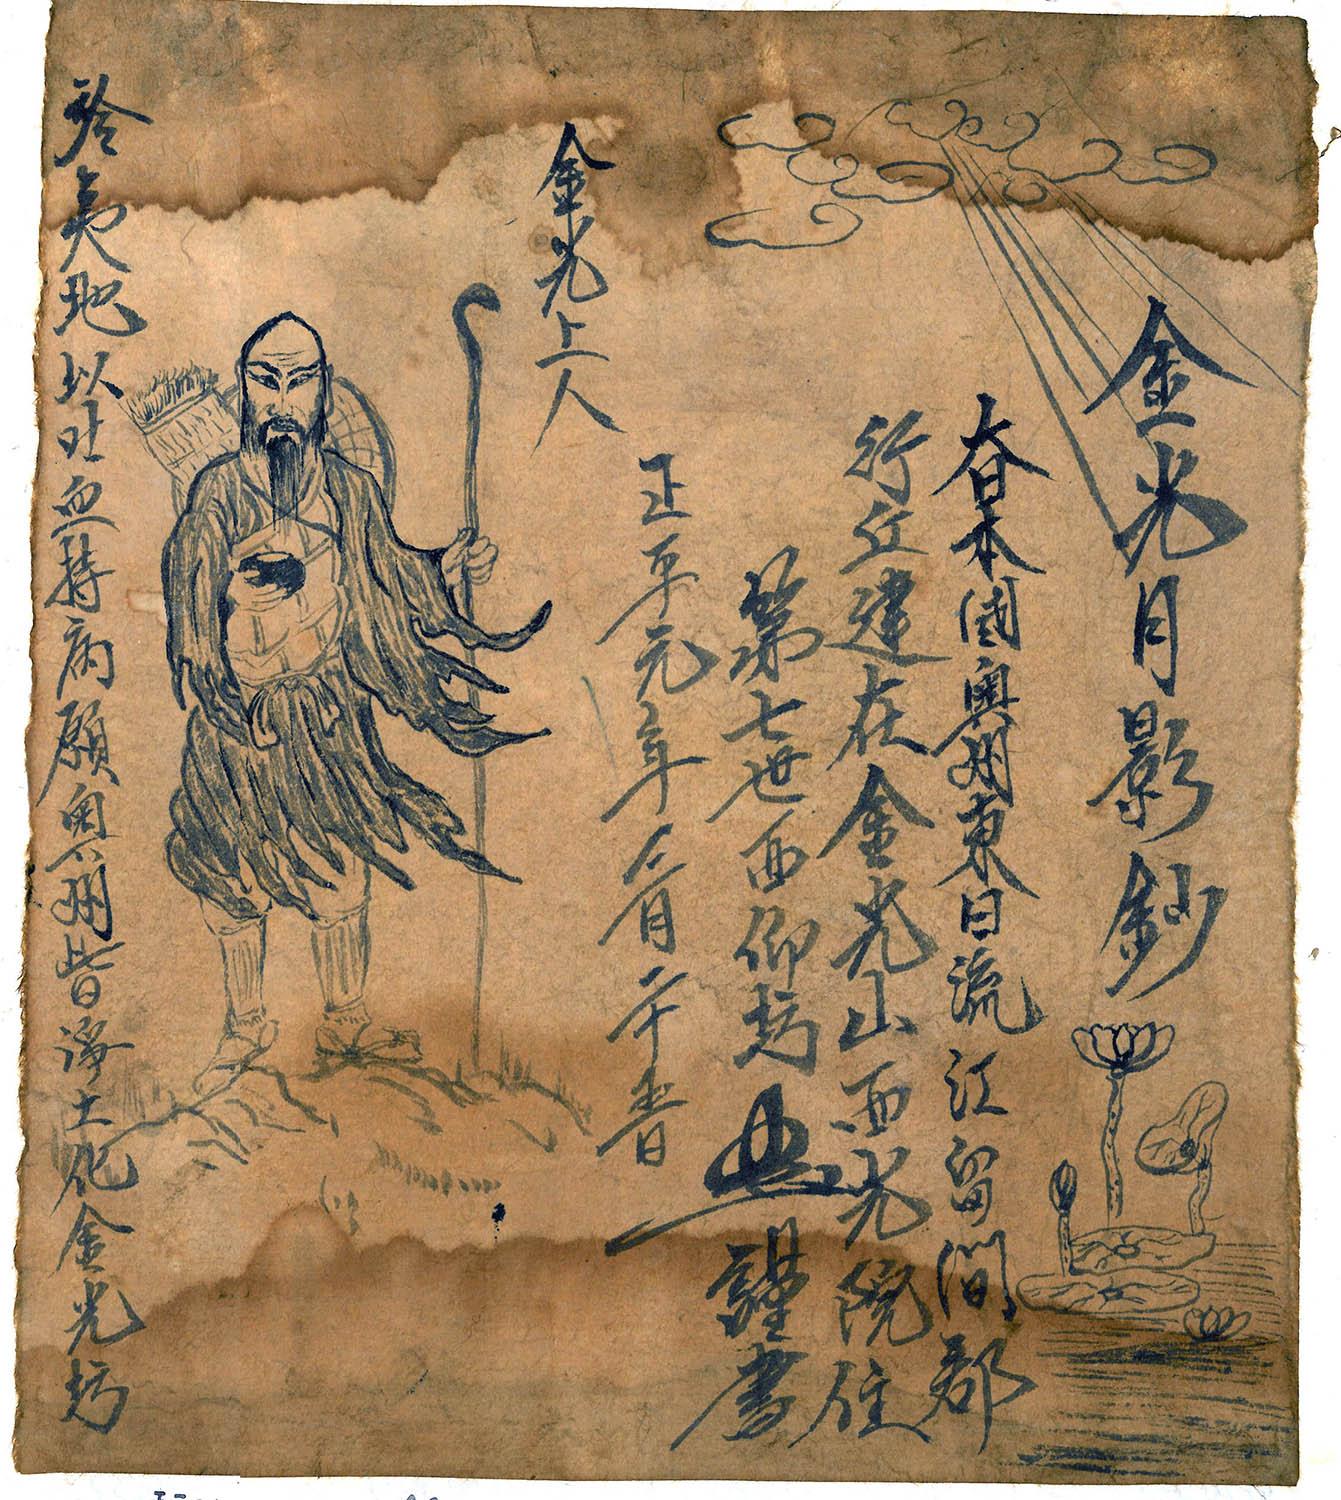 金光月影鈔
大日本國奥州東日流江留間郡
行丘建在金光山西光院住
第七世西仰坊 謹書
正平元年 月二十 日
金光上人
於夷地以吐血持病願奥州皆淨土化金光坊